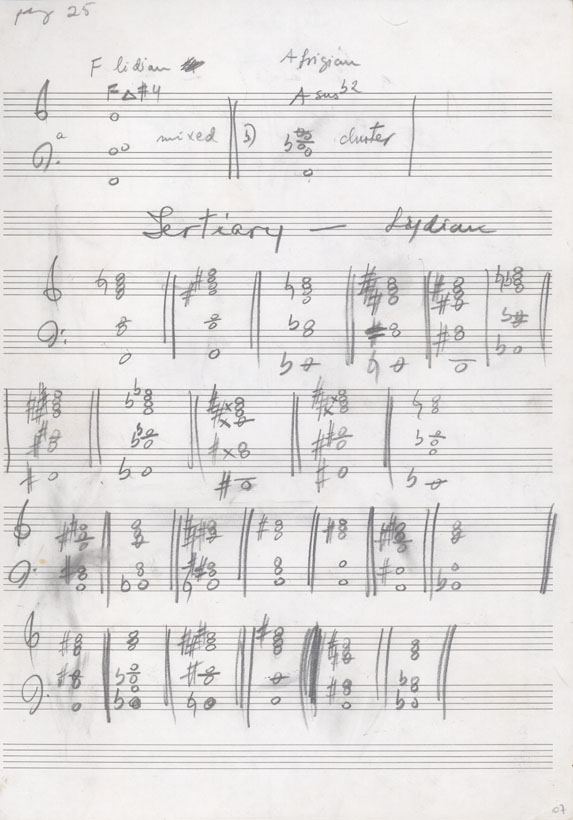 pag 25
F lidian A frigian
F△#4 A sus b2
a mixed b) cluster
Tertiary — Lydian
07